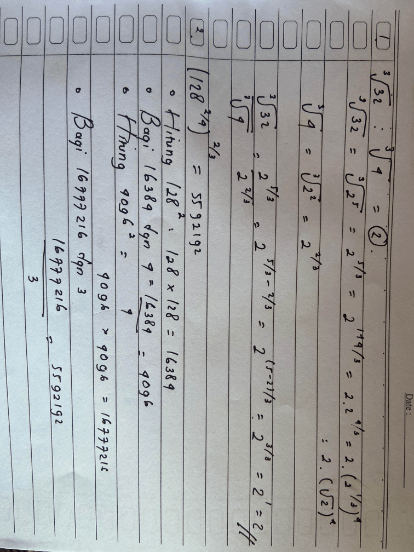 Date:
1 ³√32 : ³√4 = 2.
³√32 = ³√2⁵ = 2^5/3 = 2^1+4/3 = 2.2^4/3 = 2.(2^1/3)⁴
: 2.(√2)⁴
³√4 = ³√2² = 2^2/3
³√32 / ³√4 = 2^5/3 / 2^2/3 = 2^5/3-2/3 = 2^(5-2)/3 = 2^3/3 = 2¹ = 2 //
2. (128^2/4)^2/3 = 5592192
• Hitung 128² : 128 x 128 = 16384
• Bagi 16384 dgn 4 = 16384 / 4 = 4096
• Hitung 4096² =
4096 x 4096 = 16777216
• Bagi 16777216 dgn 3
16777216 / 3 = 5592192